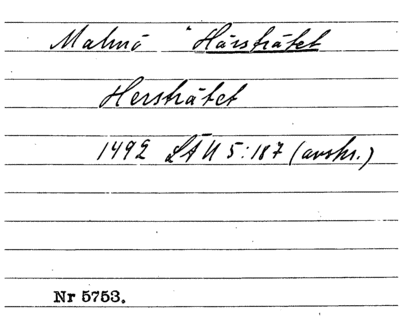 Malmö *Härsträtet
Hersträtet
1492 LÄU 5:187 (avskr.)
Nr 5753.